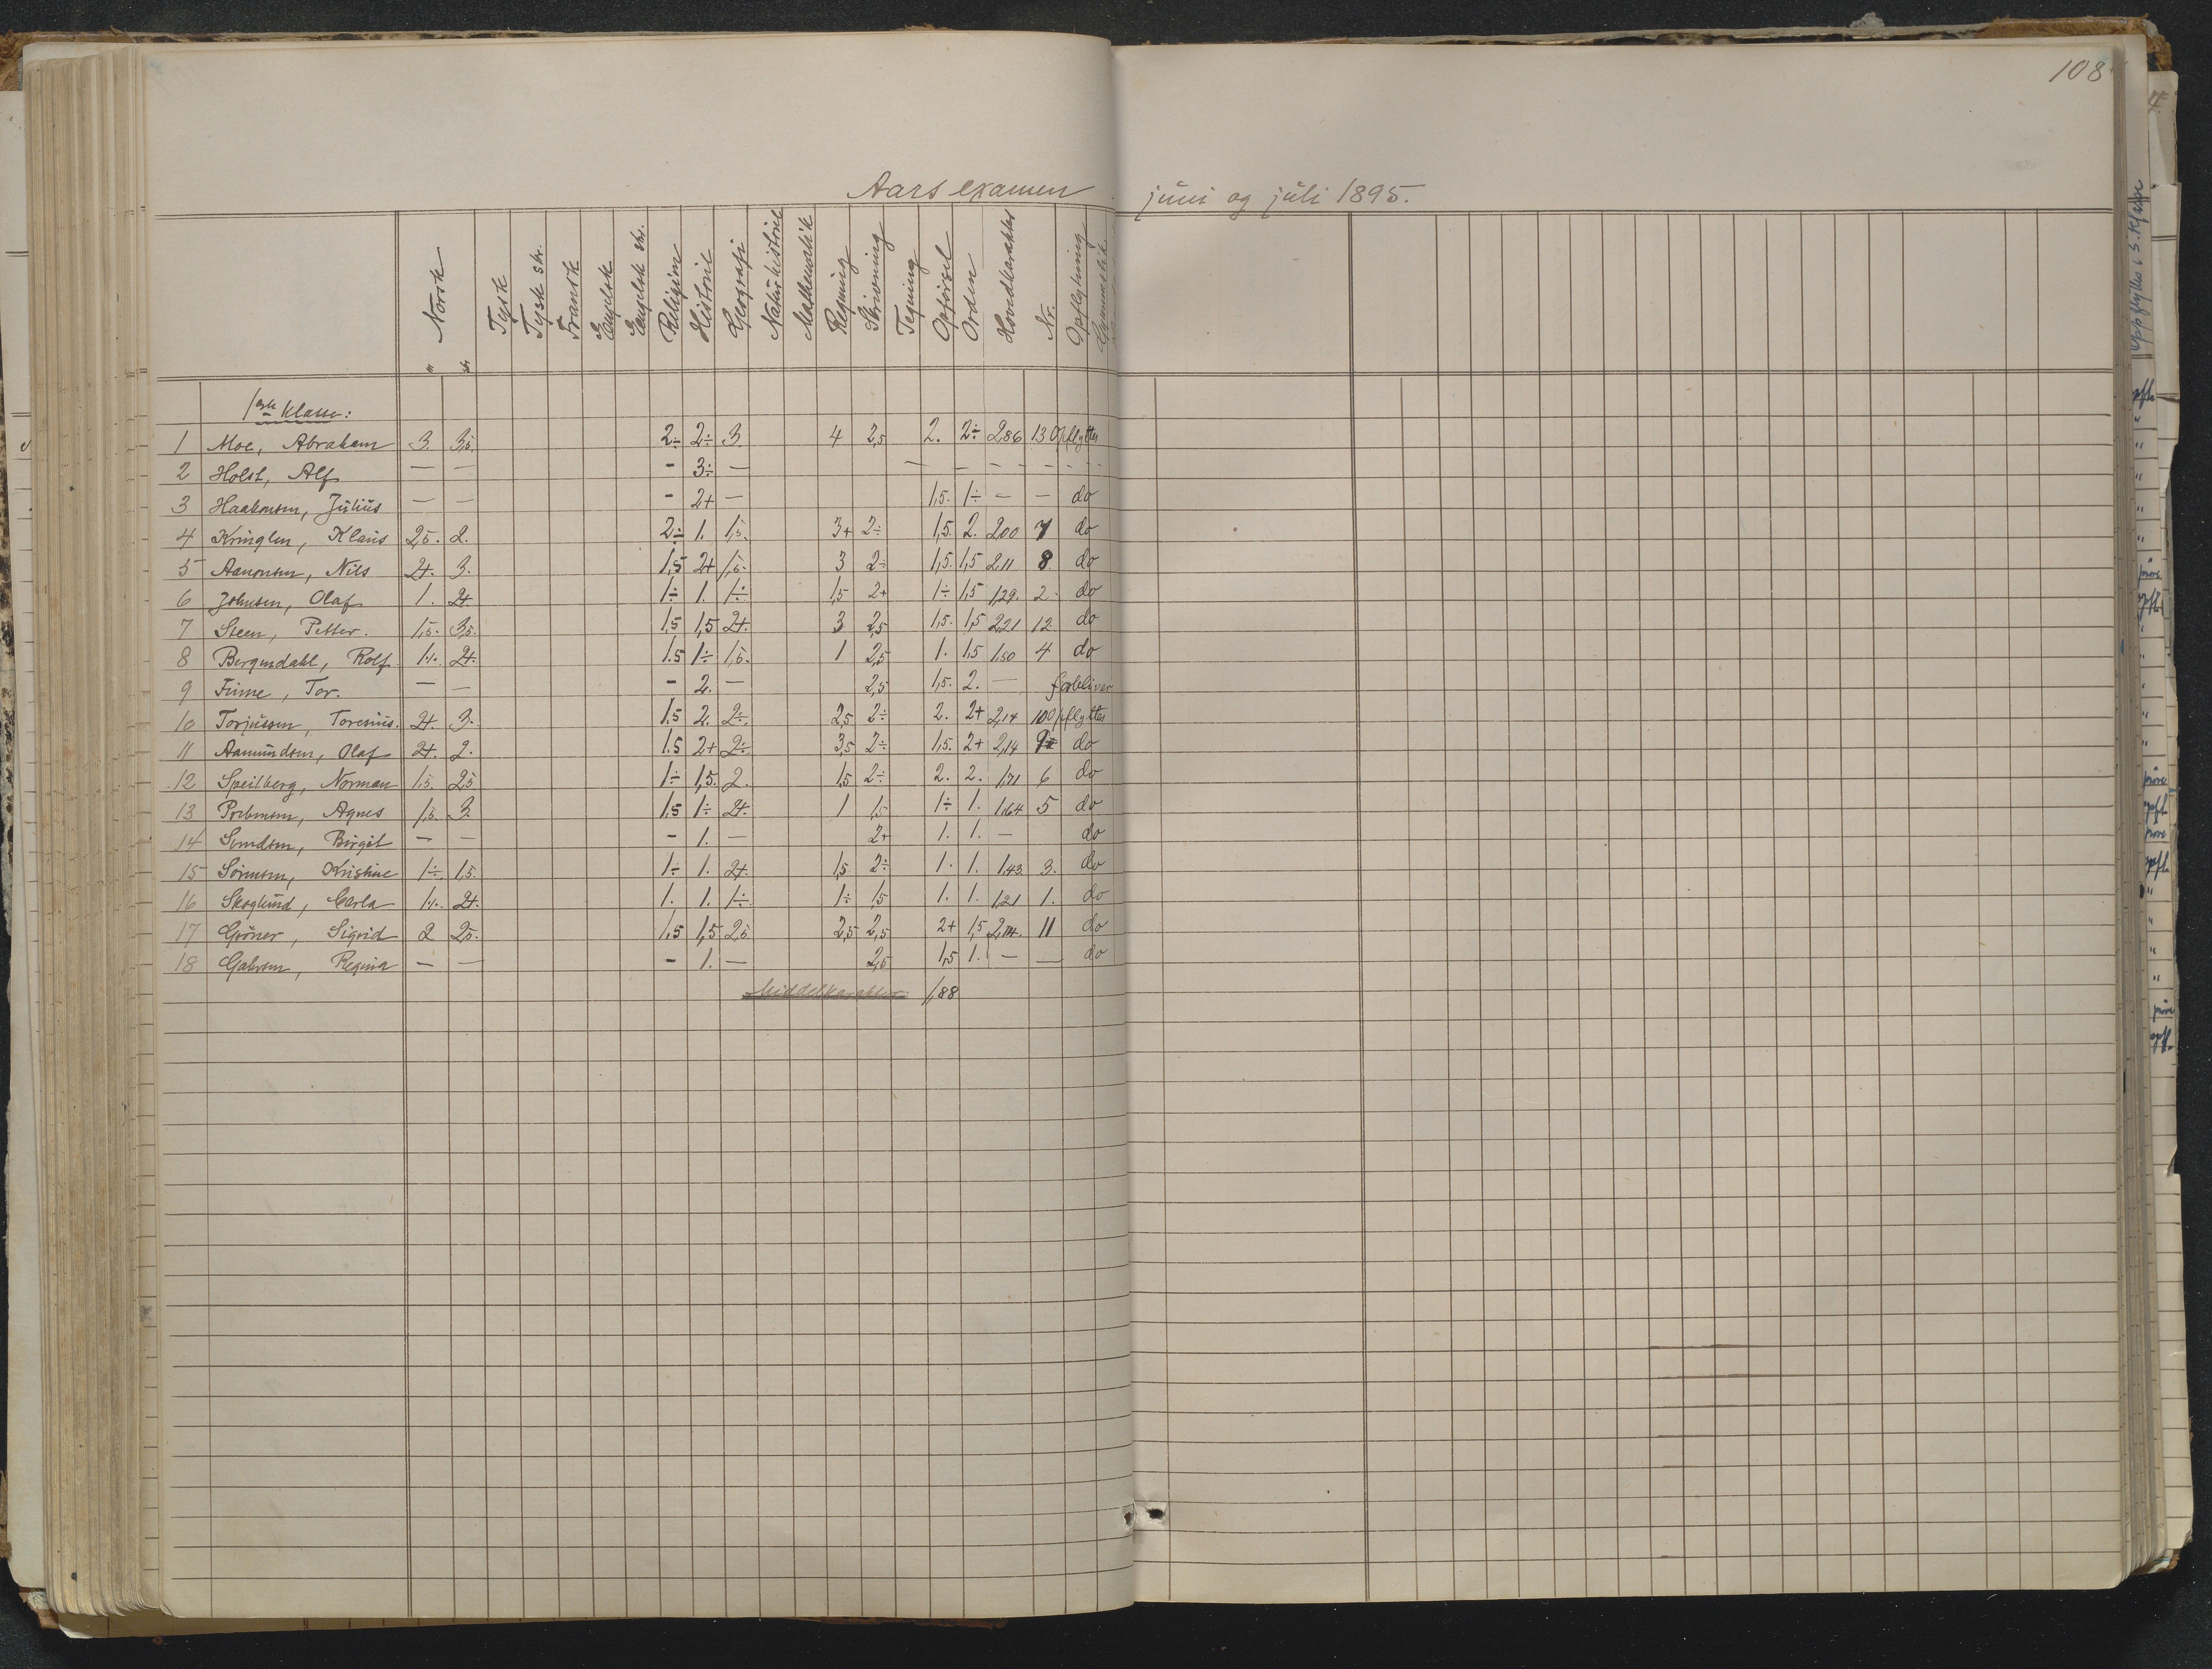 108
Aars examen juni og juli 1895.
Norsk Tysk Tysk skr. Fransk Engelsk Engelsk skr. Religion Historie Geografi Naturhistorie Mathematik Regning Skrivning Tegning Opförsel Orden Hovedkarakter Nr. Opflytning Gymnastik
1ste Klasse:
1 Moe, Abraham 3. 3,5. 2÷ 2÷ 3 4 2,5 2. 2÷ 2,86 13 Opflyttes
2 Holst, Alf — — - 3÷ — — — — — — — —
3 Haakonsen, Julius — — - 2+ — 1,5. 1÷ — — do
4 Kringlen, Klaus 2,5. 2. 2÷ 1. 1,5. 3+ 2÷ 1,5. 2. 2,00 7 do
5 Aanonsen, Nils 2+. 3. 1,5 2+ 1,5. 3 2÷ 1,5. 1,5 2,11 8 do
6 Johnsen, Olaf 1. 2+. 1÷ 1. 1÷ 1,5 2+ 1÷ 1,5 1,29. 2. do
7 Steen, Petter. 1,5. 3,5. 1,5 1,5 2+. 3 2,5 1,5. 1,5 2,21 12. do
8 Bergendahl, Rolf 1÷. 2+. 1.5 1÷ 1,5. 1 2,5 1. 1,5 1,50 4 do
9 Finne, Tor. — — - 2. — 2,5 1,5. 2. — forbliver
10 Torjussen, Torenius. 2+. 3. 1.5 2. 2÷. 2,5 2÷ 2. 2+ 2,14 10 Opflyttes
11 Aamundsen, Olaf 2+. 2. 1.5 2+ 2÷. 3,5 2÷ 1,5. 2+ 2,14 9 do
12 Speilberg, Norman 1.5. 2,5 1÷ 1,5. 2. 1,5 2÷ 2. 2. 1,71 6 do
13 Prebensen, Agnes 1,5. 3. 1,5 1÷ 2+. 1 1,5 1÷ 1. 1,64 5 do
14 Svendsen, Birgit — — - 1. — 2+ 1. 1. — do
15 Sörensen, Kristine 1÷. 1,5. 1÷ 1. 2+. 1,5 2÷ 1. 1. 1,43. 3. do
16 Skoglund, Carla 1÷. 2+. 1. 1. 1÷ 1÷ 1,5 1. 1. 1,21 1. do
17 Gröner, Sigrid 2 2,5. 1,5 1,5 2,5 2,5 2,5 2+ 1,5 2,14. 11 do
18 Regina — — - 1. — 2,5 1,5 1. — — do
Middelkarakter: 1,88